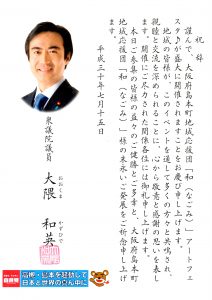 祝辞
謹んで、大阪府島本町地域応援団「和(なごみ)」アートフェ
スタが盛大に開催されますことお慶び申し上げます。
地域の皆様が、このイベントを通して多くの方々と共鳴され、
親睦と交流を深められることに、心から敬意と感謝の思いを表し
ます。開催にご尽力された関係各位には御礼申し上げます。
本日ご参集の皆様の益々のご健勝とご多幸と、大阪府島本町
地域応援団「和(なごみ)」様の末永いご発展をご祈念申し上げ
ます。
平成三十年七月十五日
衆議院議員
大隈 和英
おおくま かずひで
高槻・島本を起点にして
日本と世界のまん中に